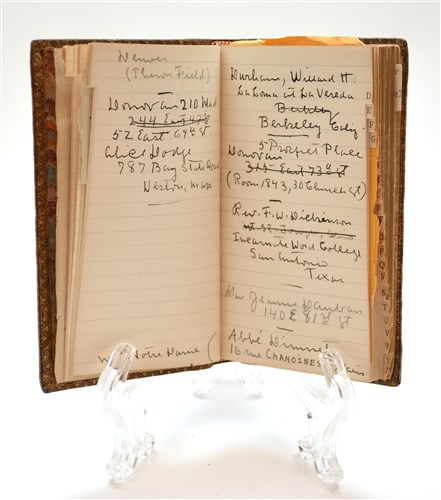 Denver
(Theron Field)
Donovan 210 Mad
244 East 47th
52 East 69th St.
Alice Dodge
787 Bay State Road
Weston, Mass
Notre Dame (
Durham, Willard H.
La Loma at La Vereda
Berkeley
Berkeley Calif.
5 Prospect Place
Donovan
315 East 73rd St
(Room 1843, 30 Church St)
Rev. F. W. Dickinson
Incarnate Word College
San Antonio
Texas
Jeanne
140 E 81st St
Abbé Dimnet
16 rue CHANOINESSE
D
E
F
G
Q
R
S
T
U
V